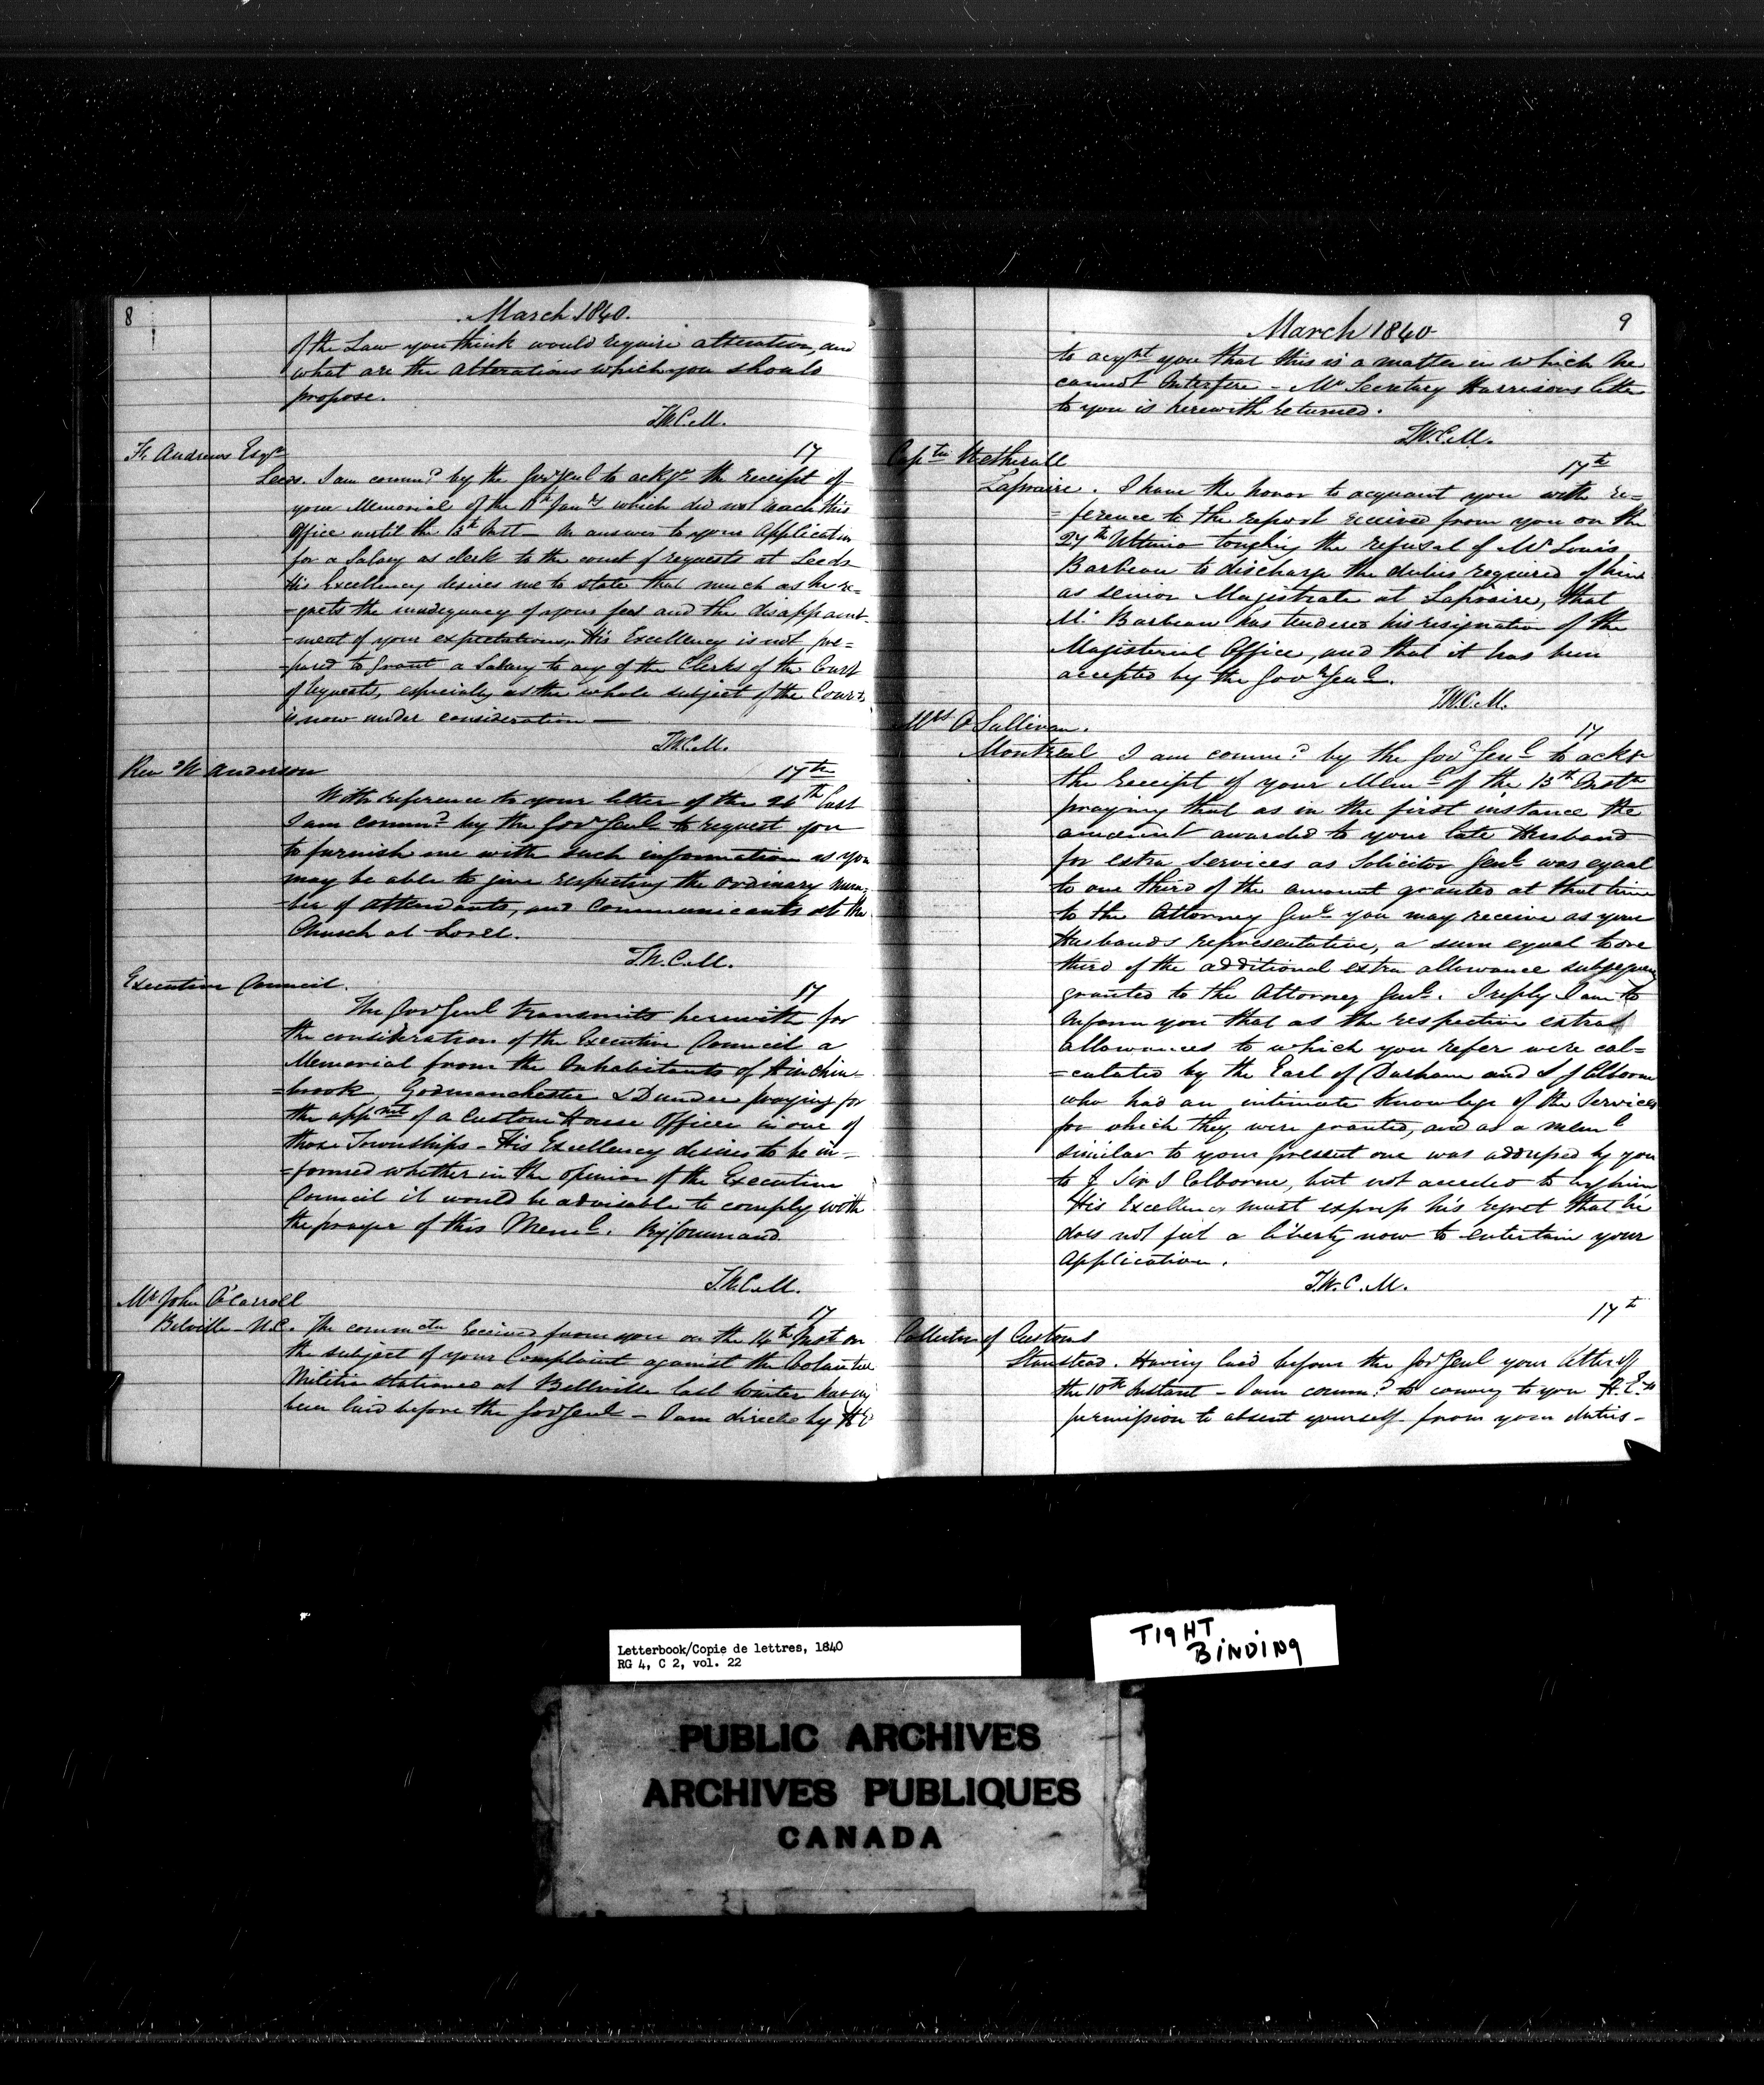 8
March 1840.
of the Law you think would require alteration, and
what are the alterations which you should
propose.
T.W.C.M.
Andrews Esqre
17
Leeds. I am commd by the Govr Genl to ackge the receipt of
your Memorial of the Jany which did not reach this
Office until the 13th Inst - In answer to your Application
for a Salary as clerk to the court of requests at Leeds
His Excellency desires me to state that much as he re=
=grets the inadequacy of your fees and the disappoint-
=ment of your expectations His Excellency is not pre=
=pared to grant a Salary to any of the Clerks of the Court
of requests, especially as the whole subject of the Courts
is now under consideration —
T.W.C.M.
Rev W Anderson
17th
With reference to your letter of the 26th last
I am commd by the Govr Genl to request you
to furnish me with such information as you
may be able to give respecting the ordinary num=
=ber of attendants, and Communicants at the
Church at Sorel.
T.W.C.M.
Executive Council.
17
The Govr Genl transmits herewith for
the consideration of the Executive Council a
Memorial from the Inhabitants of Hinchin-
=brook, Godmanchester & Dundee praying for
the appmt of a Custom House Officer in one of
those Townships - His Excellency desires to be in-
=formed whether in the opinion of the Executive
Council it would be advisable to comply with
the prayer of this Meml. By Command
T.W.C.M.
Mr John O'Carroll
17
Belville - U.C. The commctn received from you on the 14th Inst on
the subject of your Complaint against the Volunteer
Militia stationed at Bellville last winter having
been laid before the Govr Genl - I am directed by H E
9
March 1840
to acqt you that this is a matter in which he
cannot Interfere - Mr Secretary Harrisons letter
to you is herewith returned.
T.W.C.M.
Captn Wetherall
17th
Laprairie. I have the honor to acquaint you with re=
=ference to the report received from you on the
27th Ultimo touching the refusal of Mr Louis
Barbeau to discharge the duties required of him
as senior Magistrate at Laprairie, that
Mr Barbeau has tendered his resignation of the
Magisterial Office, and that it has been
accepted by the Govr Genl.
T.W.C.M.
Mrs O'Sullivan.
17
Montreal I am commd by the Govr Genl to ackge
the receipt of your Meml of the 13th Inst
praying that as in the first instance the
amount awarded to your late Husband
for extra services as Solicitor Genl was equal
to one third of the amount granted at that time
to the Attorney Genl you may receive as your
Husbands representative, a sum equal to one
third of the additional extra allowance subsequently
granted to the Attorney Genl. I reply I am to
inform you that as the respective extra
allowances to which you refer were cal=
=culated by the Earl of Durham and S J Colborne
who had an intimate knowledge of the Services
for which they were granted, and as a meml
similar to your present one was addressed by you
to Sir J Colborne, but not acceded to by him
His Excellency must express his regret that he
does not feel a liberty now to entertain your
Application.
T.W.C.M.
17th
Collector of Customs
Stanstead. Having laid before the Govr Genl your letter of
the 10th Instant - I am commd to convey to you H.E.'s
permission to absent yourself from your duties -
Letterbook/Copie de lettres, 1840
RG 4, C 2, vol. 22
TIGHT
BINDING
PUBLIC ARCHIVES
ARCHIVES PUBLIQUES
CANADA